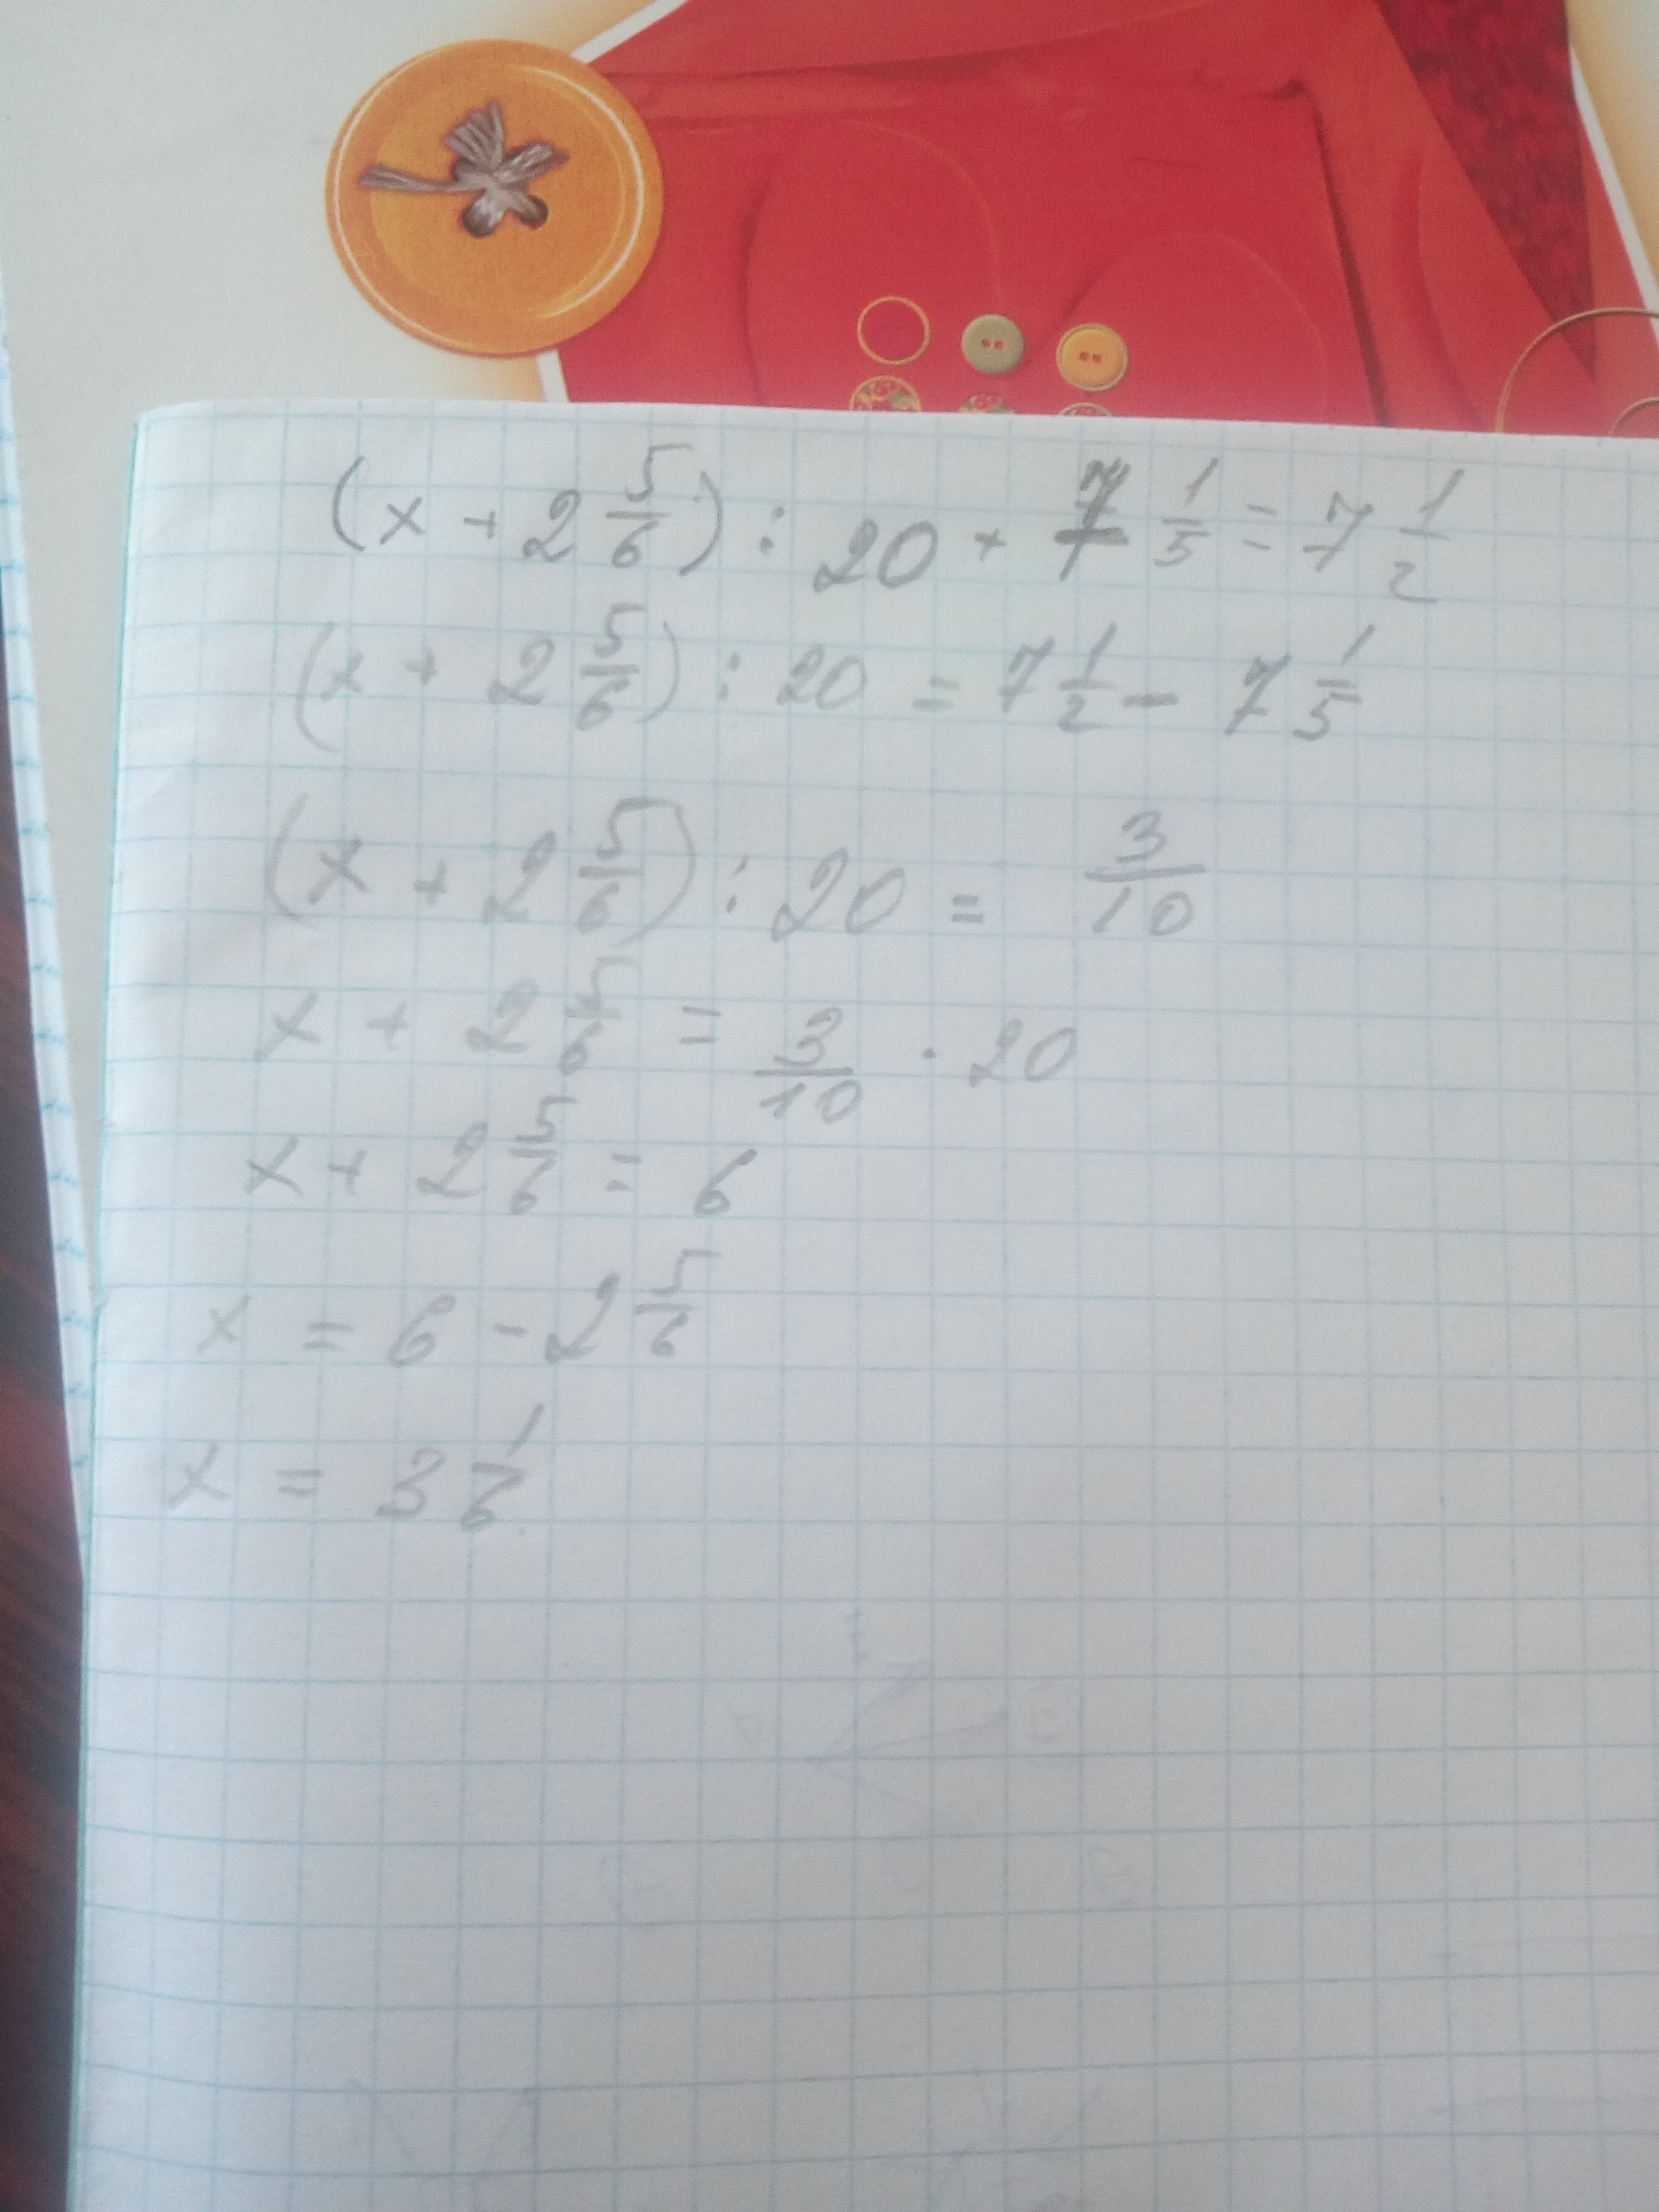 (x + 2 5/6) : 20 + 7 1/5 = 7 1/2
(x + 2 5/6) : 20 = 7 1/2 - 7 1/5
(x + 2 5/6) : 20 = 3/10
x + 2 5/6 = 3/10 · 20
x + 2 5/6 = 6
x = 6 - 2 5/6
x = 3 1/6